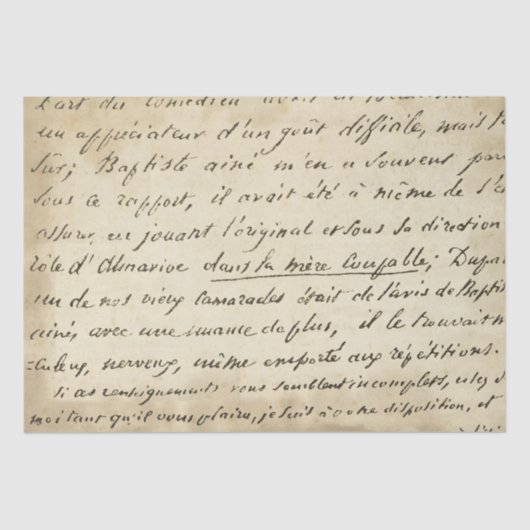 L'art du comédien avait en
un appréciateur d'un goût difficile, mais
sûr; Baptiste ainé m'en a souvent
sous ce rapport, il avait été à même de
assurer, en jouant l'original et sous sa direction
rôle d'Almavive dans la mère Coupable;
un de nos vieux Camarades était de l'avis de
ainé, avec une nuance de plus, il le trouvait
nerveux, même emporté aux répétitions.
Si ces renseignements vous semblent incomplets,
moi tant qu'il vous plaira, je suis à votre disposition, et